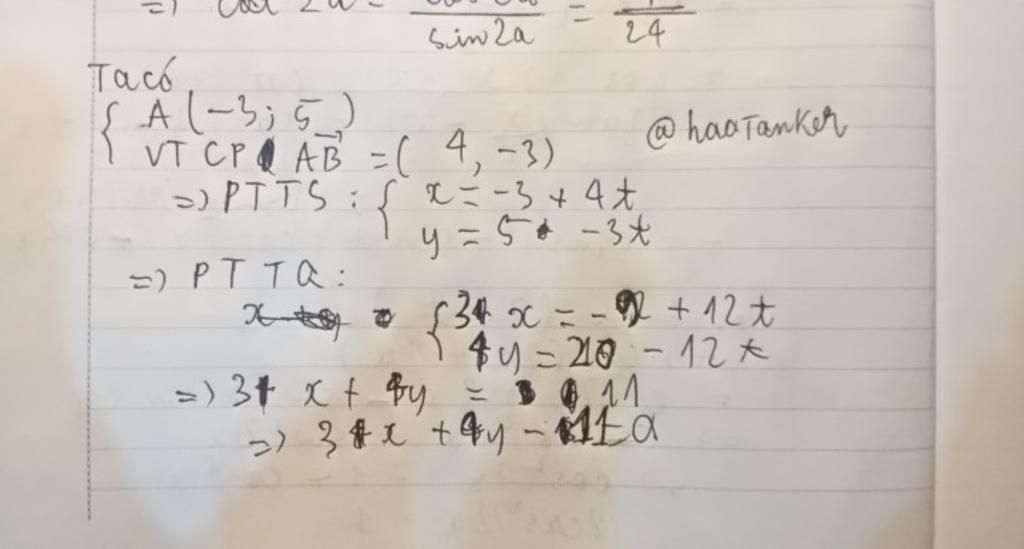 =) cot 2a = = 
sin2a 24
Ta có
A (-3; 5)
VT CP AB = ( 4, -3)
@haaTanker
=) PTTS : { x = -3 + 4t
y = 5 -3t
=) PTTQ:
{ 3 x = -9 + 12t
4y = 20 - 12t
=) 3 x + 4y = 11
=) 3 x + 4y - 11